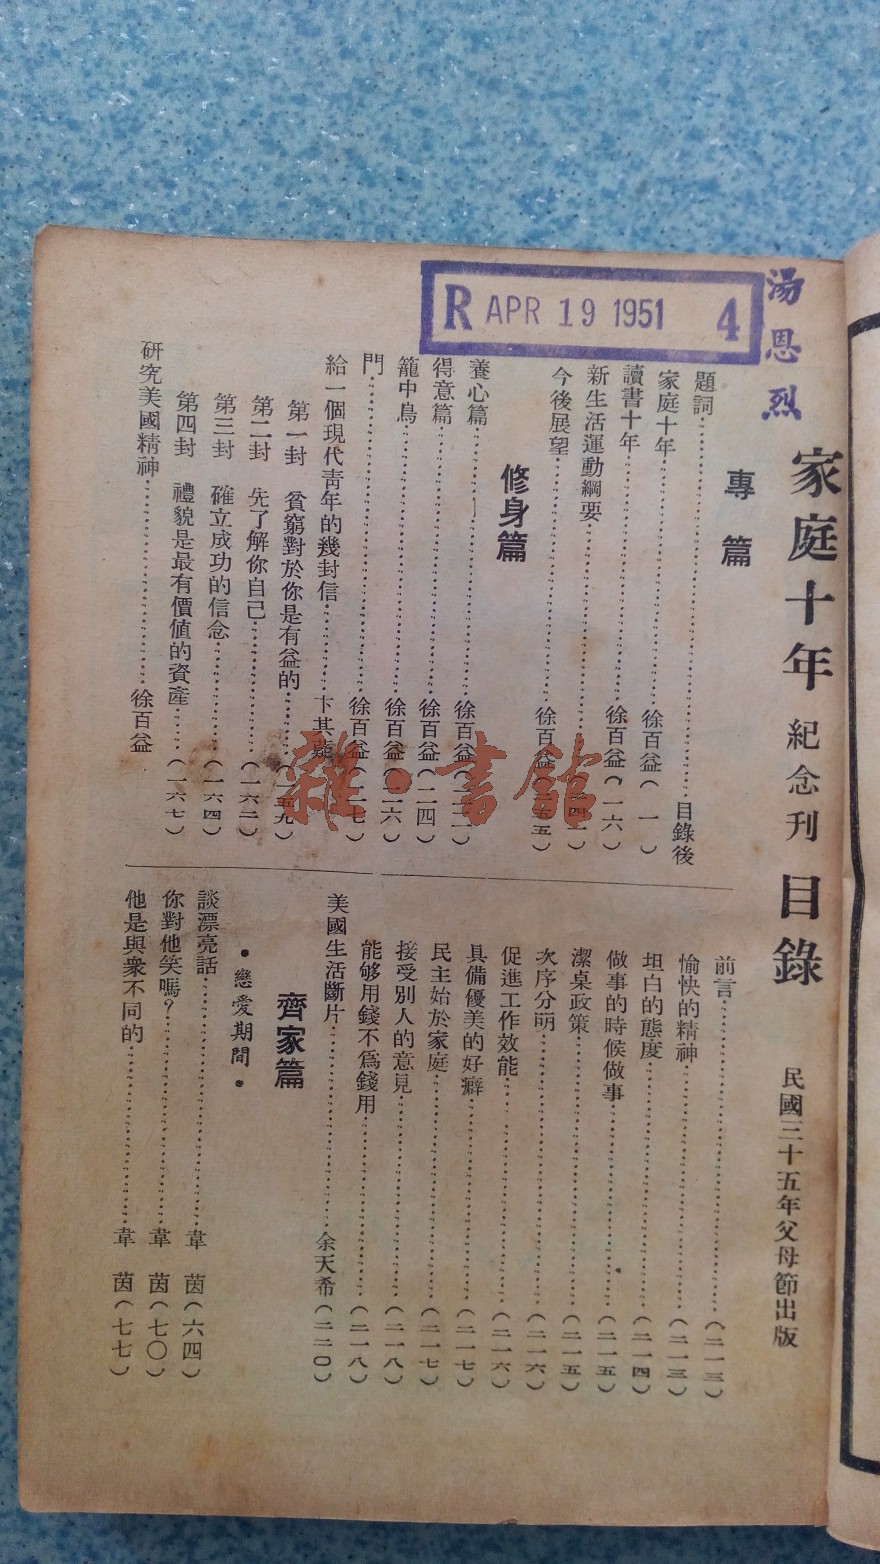 湯恩烈
R APR 19 1951 4
家庭十年紀念刊目錄 民國三十五年父母節出版
專篇
題詞……目錄後
家庭十年……徐百益(一)
讀書十年……徐百益(一六)
新生活運動綱要……
今後展望……徐百益
修身篇
養心篇……徐百益
得意篇……徐百益(二四)
籠中鳥……徐百益(二六)
門……徐百益(二七)
給一個現代青年的幾封信……卞其
第一封 貧窮對於你是有益的……(一五九)
第二封 先了解你自己……(一六二)
第三封 確立成功的信念……(一六四)
第四封 禮貌是最有價值的資產……(一六七)
研究美國精神……徐百益
前言……(二一三)
愉快的精神……(二一三)
坦白的態度……(二一四)
做事的時候做事……(二一五)
潔桌政策……(二一五)
次序分明……(二一六)
促進工作效能……(二一六)
具備優美的好癖……(二一七)
民主始於家庭……(二一七)
接受別人的意見……(二一八)
能够用錢不爲錢用……(二一八)
美國生活斷片……余天希(二二〇)
齊家篇
•戀愛期間•
談漂亮話……韋茵(六四)
你對他笑嗎?……韋茵(七〇)
他是與衆不同的……韋茵(七七)
雜·書館